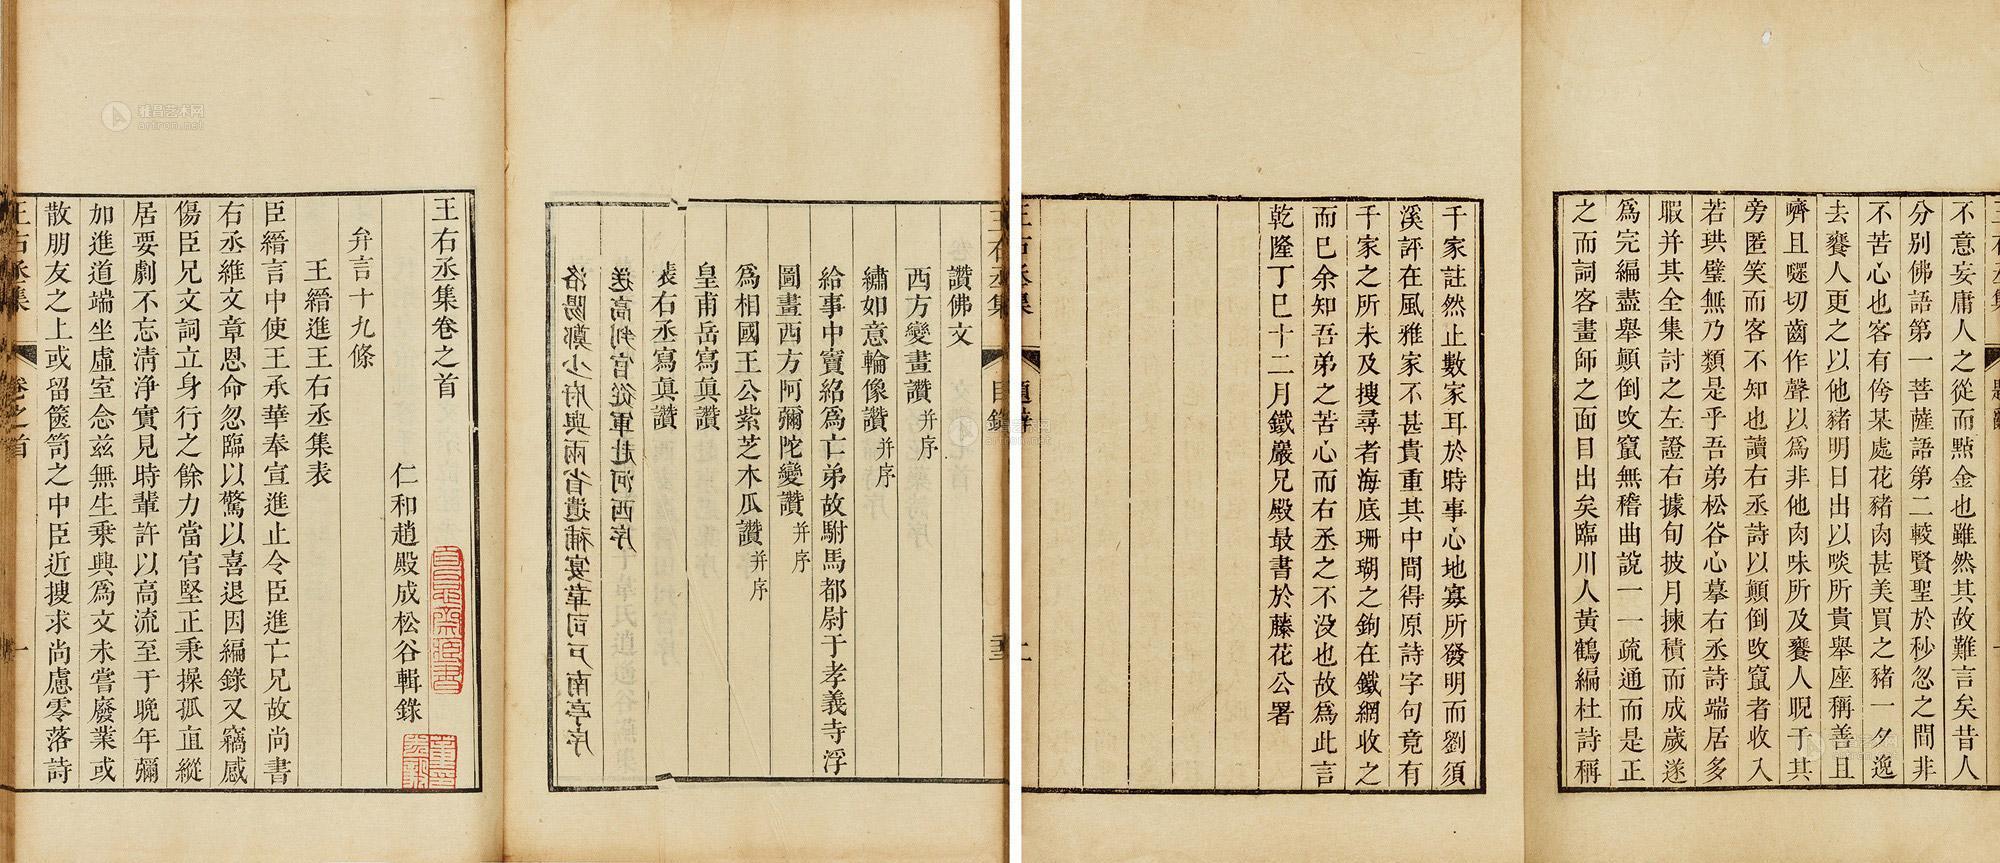 不意妄庸人之從而㸃金也雖然其故難言矣昔人
分別佛語第一菩薩語第二較賢聖於秒忽之間非
不苦心也客有侉某處花豬肉甚美買之豬一夕逸
去饔人更之以他豬明日出以啖所貴舉座稱善且
嚌且嚃切齒作聲以爲非他肉味所及饔人睨于其
旁匿笑而客不知也讀右丞詩以顛倒攺竄者收入
若珙璧無乃類是乎吾弟松谷心摹右丞詩端居多
暇并其全集討之左證右據旬披月揀積而成歲遂
爲完編盡舉顛倒攺竄無稽曲說一一疏通而是正
之而詞客畫師之面目出矣臨川人黃鶴編杜詩稱
千家註然止數家耳於時事心地寡所發明而劉須
溪評在風雅家不甚貴重其中間得原詩字句竟有
千家之所未及搜尋者海底珊瑚之鉤在鐵網收之
而已余知吾弟之苦心而右丞之不没也故爲此言
乾隆丁巳十二月鐵巖兄殿最書於藤花公署
王右丞集 題辭 二
王右丞集 目錄
讚佛文
西方變畫讚并序
繡如意輪像讚并序
給事中竇紹爲亡弟故駙馬都尉于孝義寺浮
圖畫西方阿彌陀變讚并序
爲相國王公紫芝木瓜讚并序
皇甫岳寫眞讚
裴右丞寫眞讚
送高判官從軍赴河西序
洛陽鄭少府與兩省遺補宴韋司戸南亭序
王右丞集卷之首
仁和趙殿成松谷輯錄
弁言十九條
王縉進王右丞集表
臣縉言中使王承華奉宣進止令臣進亡兄故尚書
右丞維文章恩命忽臨以驚以喜退因編錄又竊感
傷臣兄文詞立身行之餘力當官堅正秉操孤直縱
居要劇不忘淸淨實見時輩許以高流至于晚年彌
加進道端坐虛室念兹無生乘興爲文未嘗廢業或
散朋友之上或留篋笥之中臣近搜求尚慮零落詩
王右丞集 卷之首 一
雅昌艺术网
artron.net